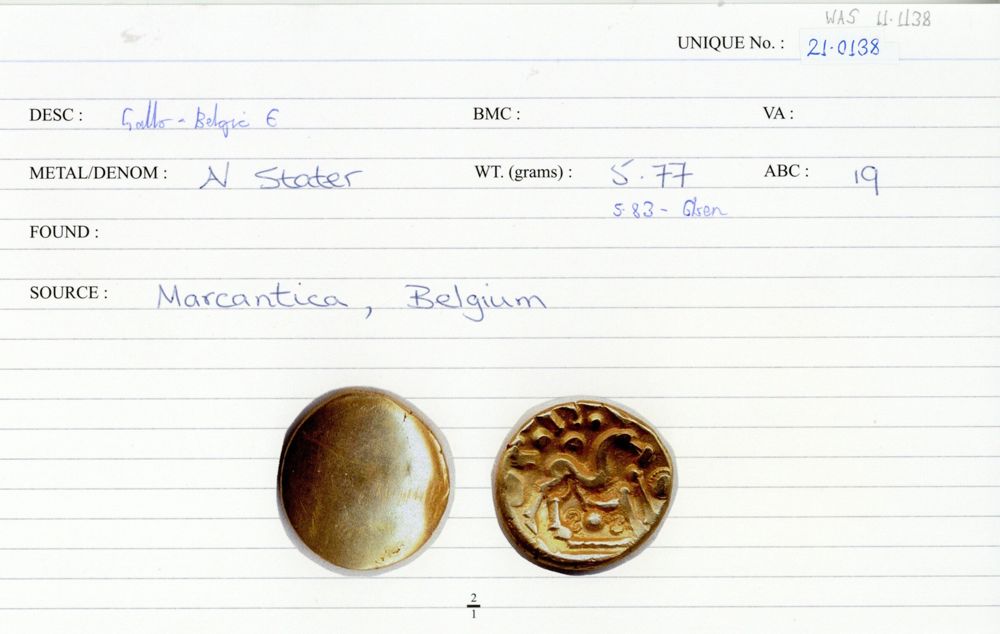 WAS 11.1138
UNIQUE No. : 21.0138
DESC : Gallo-Belgic E BMC : VA :
METAL/DENOM : N Stater WT. (grams) : 5.77 ABC : 19
5.83 -
FOUND :
SOURCE : Marcantica, Belgium
2
1